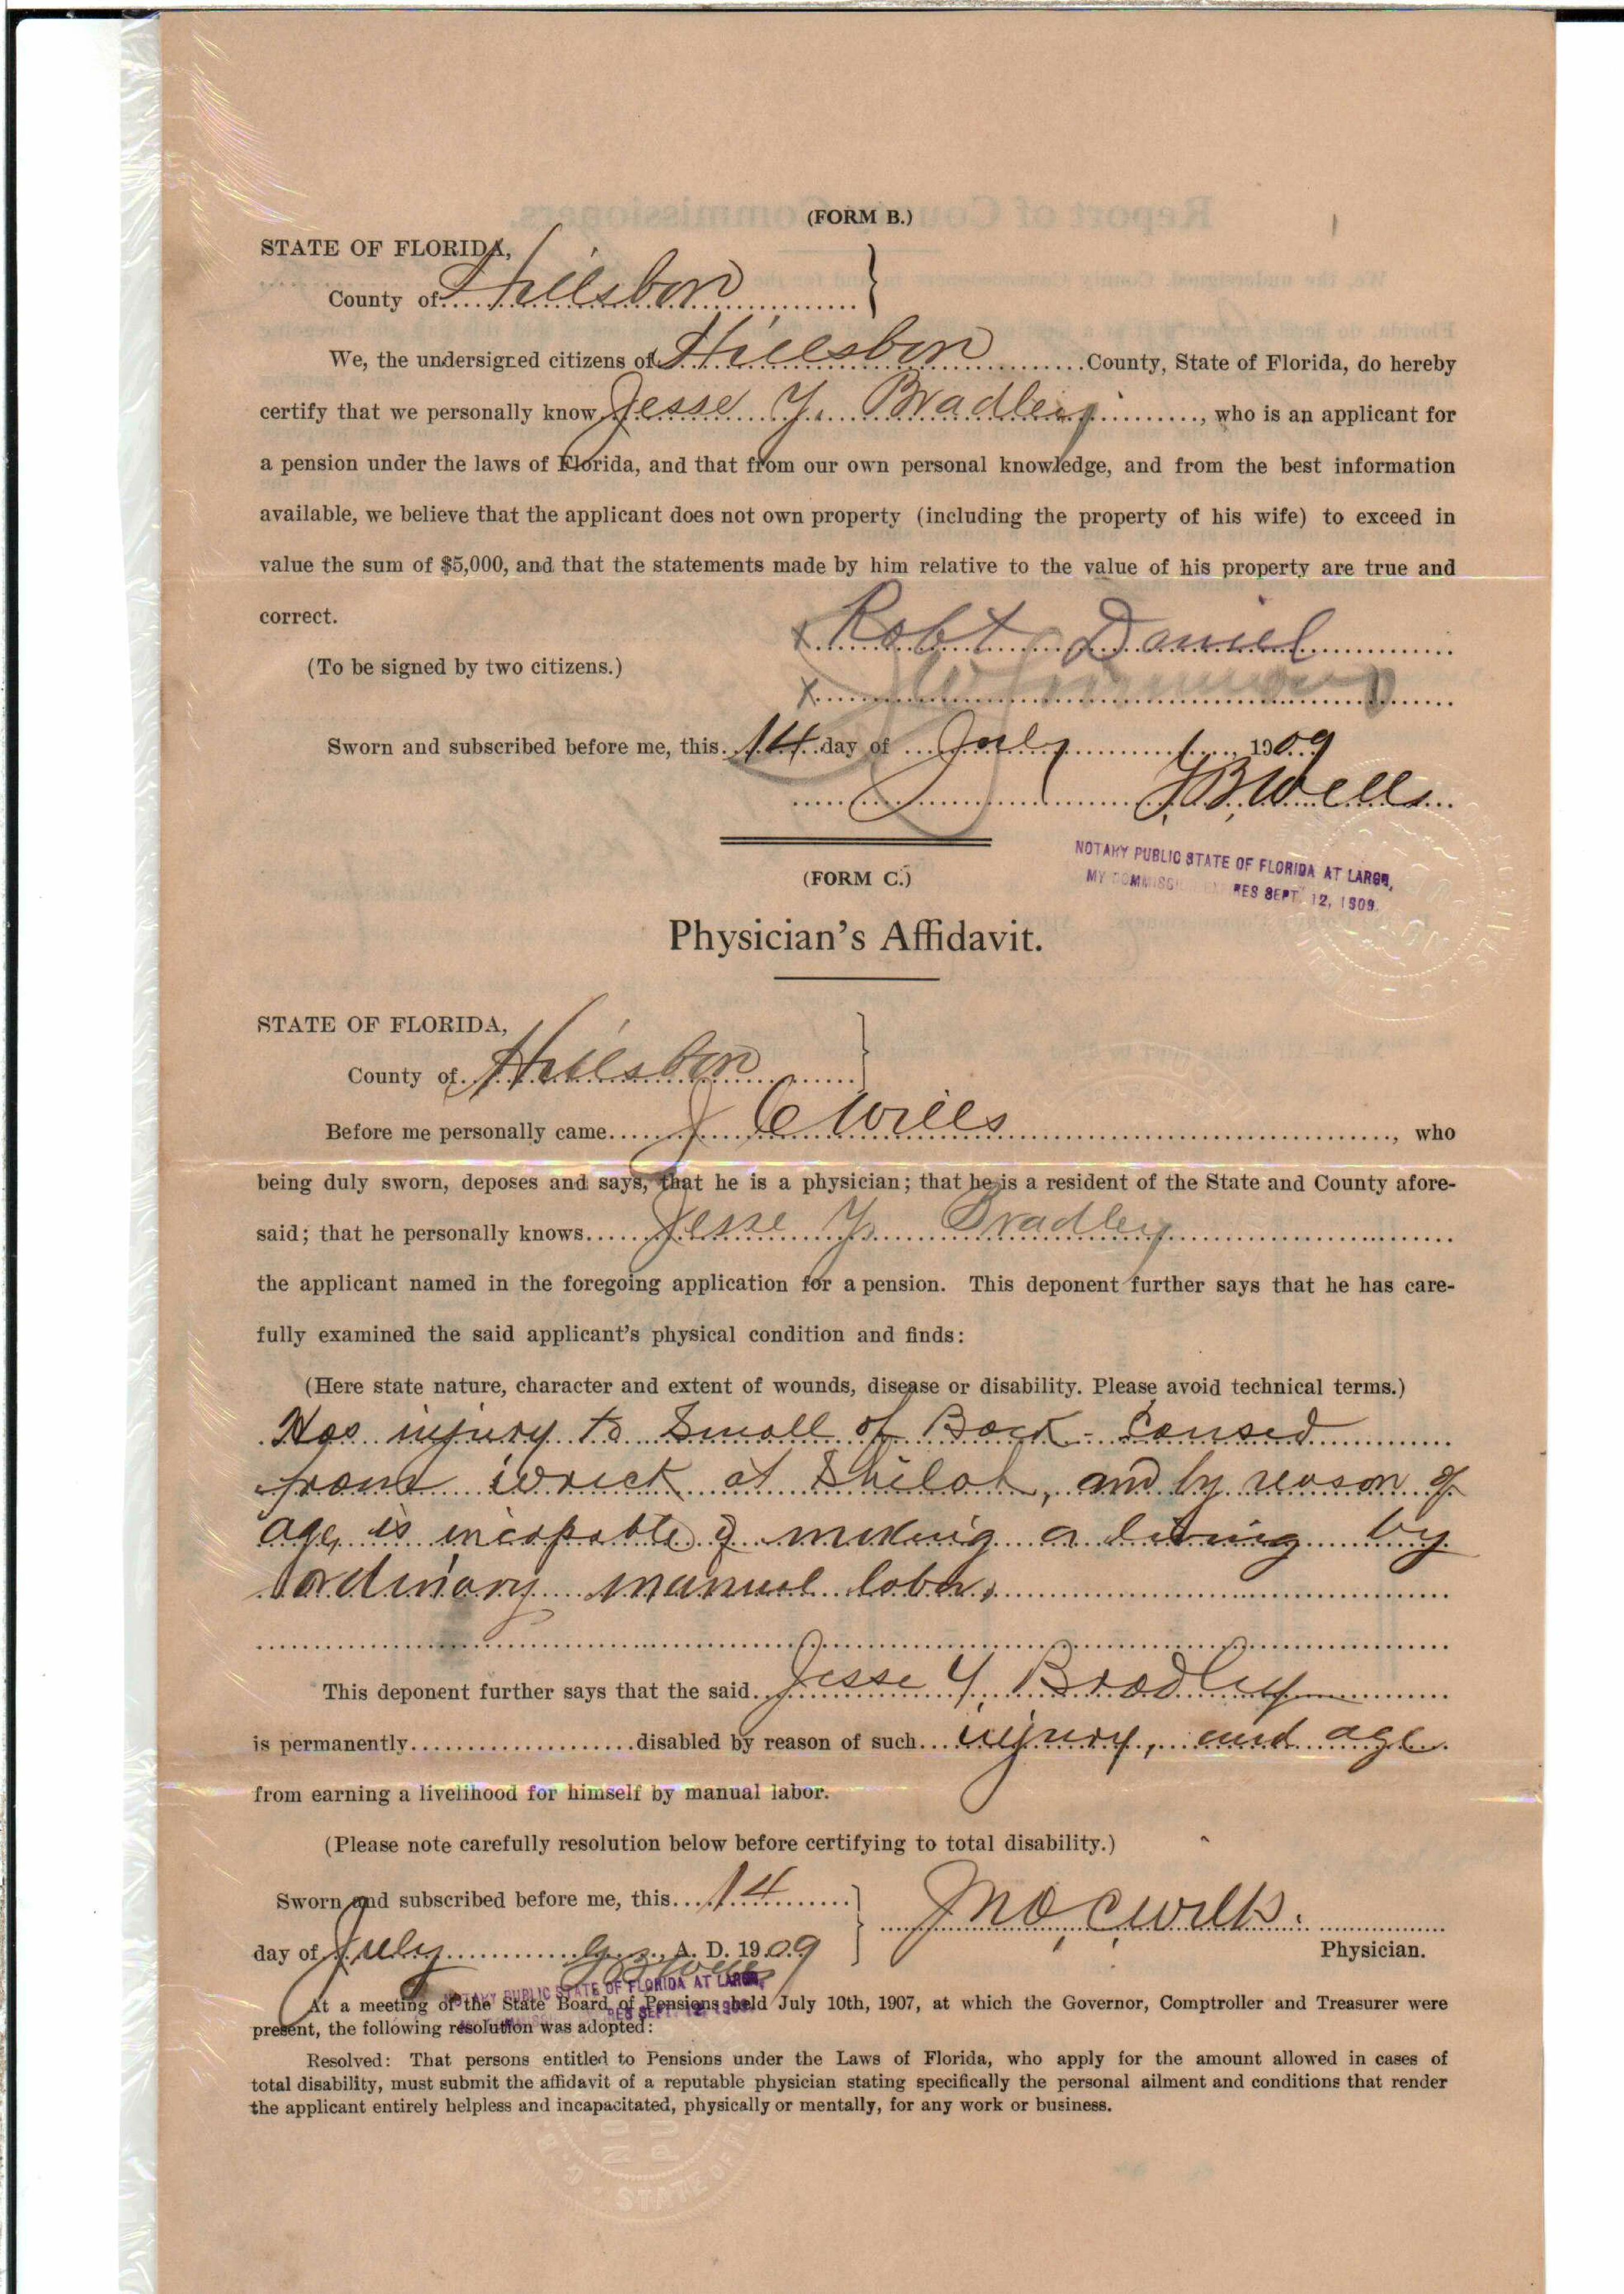 (FORM B.)
STATE OF FLORIDA,
County of Hillsboro
We, the undersigned citizens of Hillsboro County, State of Florida, do hereby
certify that we personally know Jesse Y. Bradley, who is an applicant for
a pension under the laws of Florida, and that from our own personal knowledge, and from the best information
available, we believe that the applicant does not own property (including the property of his wife) to exceed in
value the sum of $5,000, and that the statements made by him relative to the value of his property are true and
correct.
x Robt Daniel
(To be signed by two citizens.)
x
Sworn and subscribed before me, this 14 day of July, 1909
J.B. Wells
NOTARY PUBLIC STATE OF FLORIDA AT LARGE,
MY COMMISSION EXPIRES SEPT. 12, 1909.
(FORM C.)
Physician's Affidavit.
STATE OF FLORIDA,
County of Hillsboro
Before me personally came J C Wills, who
being duly sworn, deposes and says, that he is a physician; that he is a resident of the State and County afore-
said; that he personally knows Jesse Y. Bradley
the applicant named in the foregoing application for a pension. This deponent further says that he has care-
fully examined the said applicant's physical condition and finds:
(Here state nature, character and extent of wounds, disease or disability. Please avoid technical terms.)
Has injury to Small of Back - Caused
from wreck at Shiloh, and by reason of
age, is incapable of making a living by
ordinary manual labor,
This deponent further says that the said Jesse Y. Bradley
is permanently disabled by reason of such injury, and age
from earning a livelihood for himself by manual labor.
(Please note carefully resolution below before certifying to total disability.)
Sworn and subscribed before me, this 14
Jno. C. Wills.
day of July A. D. 1909
Physician.
J B Wells
NOTARY PUBLIC STATE OF FLORIDA AT LARGE,
RES SEPT. 12, 1909.
At a meeting of the State Board of Pensions held July 10th, 1907, at which the Governor, Comptroller and Treasurer were
present, the following resolution was adopted:
Resolved: That persons entitled to Pensions under the Laws of Florida, who apply for the amount allowed in cases of
total disability, must submit the affidavit of a reputable physician stating specifically the personal ailment and conditions that render
the applicant entirely helpless and incapacitated, physically or mentally, for any work or business.